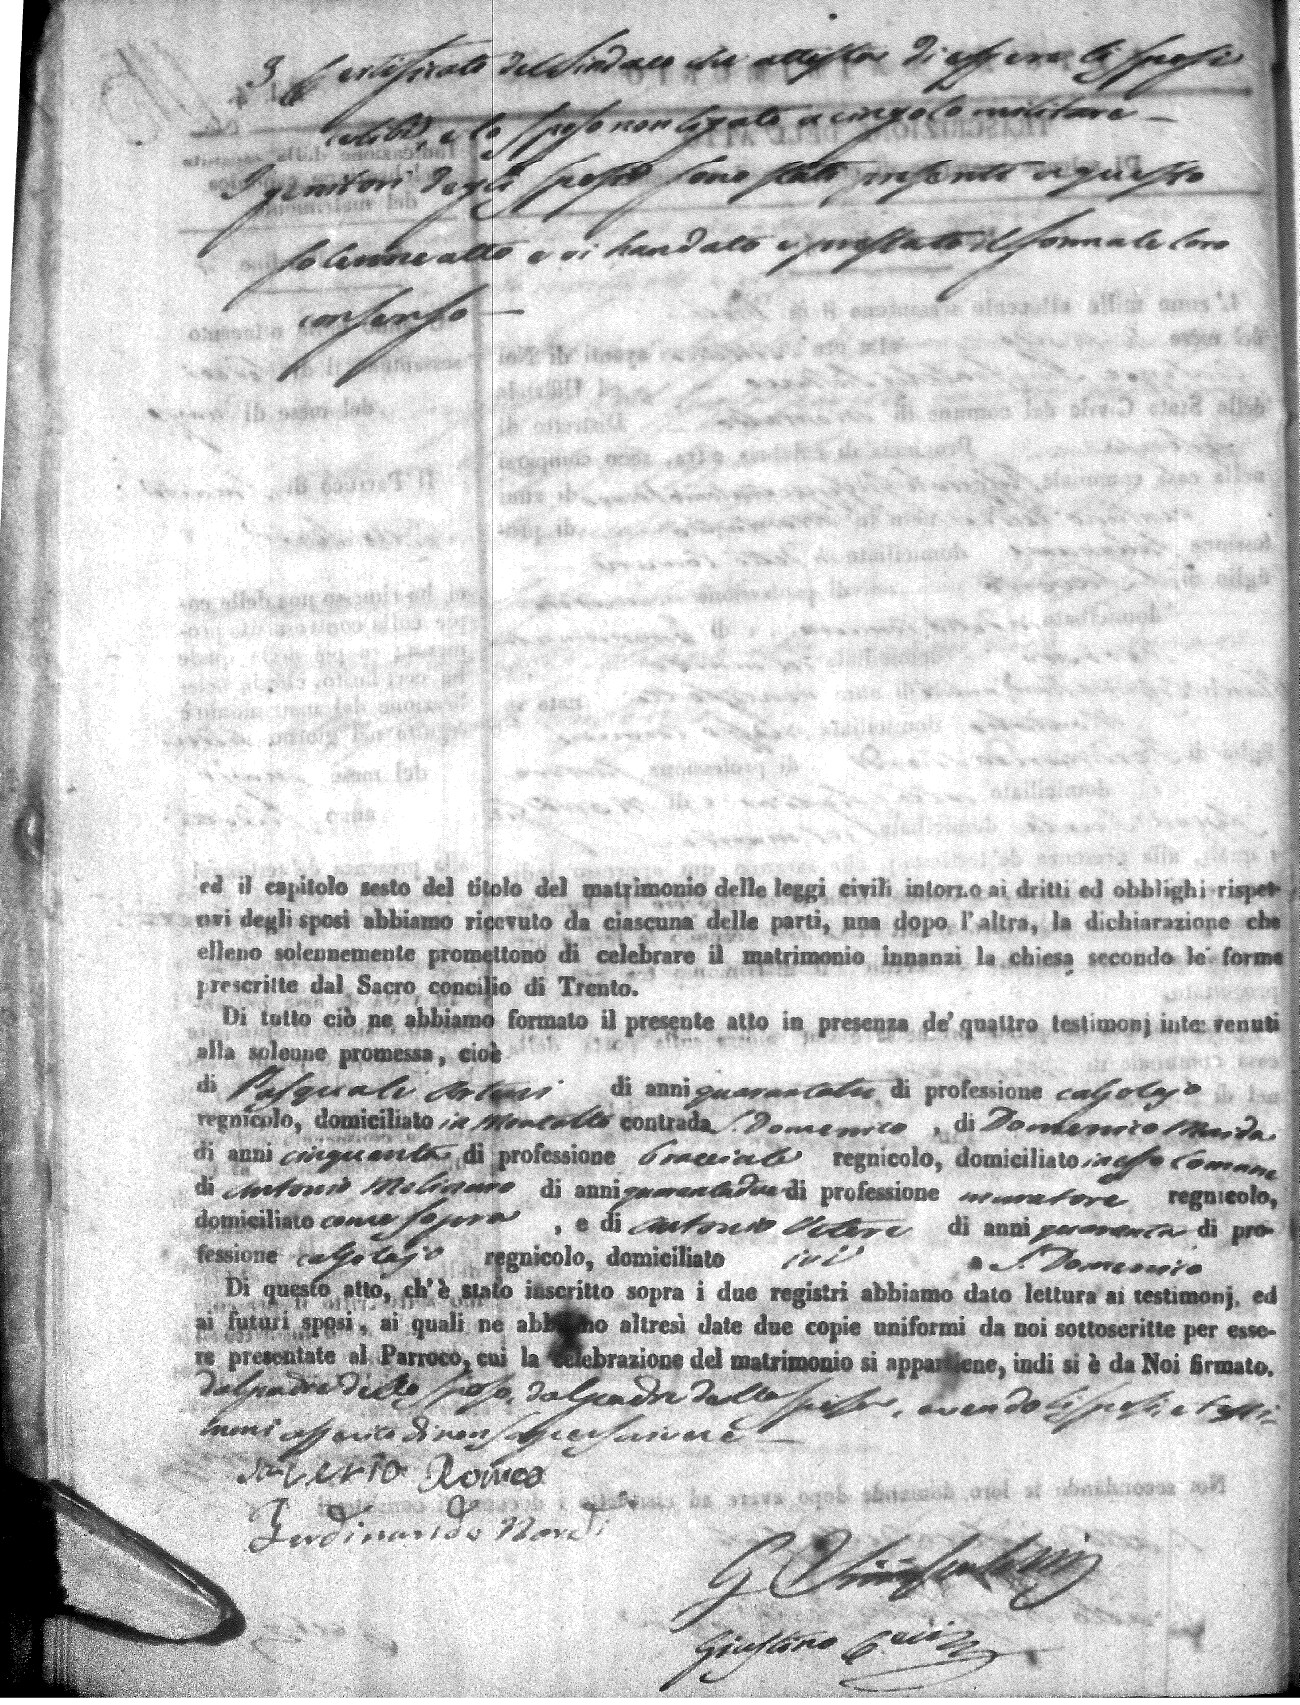 3. Certificato del Sindaco che attesta di essere li sposi
celibi, e lo sposo non ligato a cingolo militare —
I genitori degli sposi sono stati presenti a questo
solenne atto e vi han dato e prestato il formale loro
consenso —
ed il capitolo sesto del titolo del matrimonio delle leggi civili intorno ai dritti ed obblighi rispet-
tivi degli sposi abbiamo ricevuto da ciascuna delle parti, una dopo l'altra, la dichiarazione che
elleno solennemente promettono di celebrare il matrimonio innanzi la chiesa secondo le forme
prescritte dal Sacro concilio di Trento.
Di tutto ciò ne abbiamo formato il presente atto in presenza de' quattro testimonj intervenuti
alla solenne promessa, cioè
di Pasquale Arturi di anni quarantatre, di professione calzolajo
regnicolo, domiciliato in Montalto contrada S. Domenico, di Domenico Maida
di anni cinquanta di professione bracciale regnicolo, domiciliato in esso Comune
di Antonio Molinaro di anni quarantadue di professione muratore regnicolo,
domiciliato come sopra, e di Antonio Veteri di anni quaranta di pro-
fessione calzolajo regnicolo, domiciliato ivi a S. Domenico
Di questo atto, ch'è stato inscritto sopra i due registri abbiamo dato lettura ai testimonj, ed
ai futuri sposi, ai quali ne abbiamo altresì date due copie uniformi da noi sottoscritte per esse-
re presentate al Parroco, cui la celebrazione del matrimonio si appartiene, indi si è da Noi firmato.
dal padre dello sposo, dal padre della sposa, avendo li sposi e testi-
moni asserito di non saper scrivere —
Saverio Romeo
Ferdinando Nardi
G
Giustino